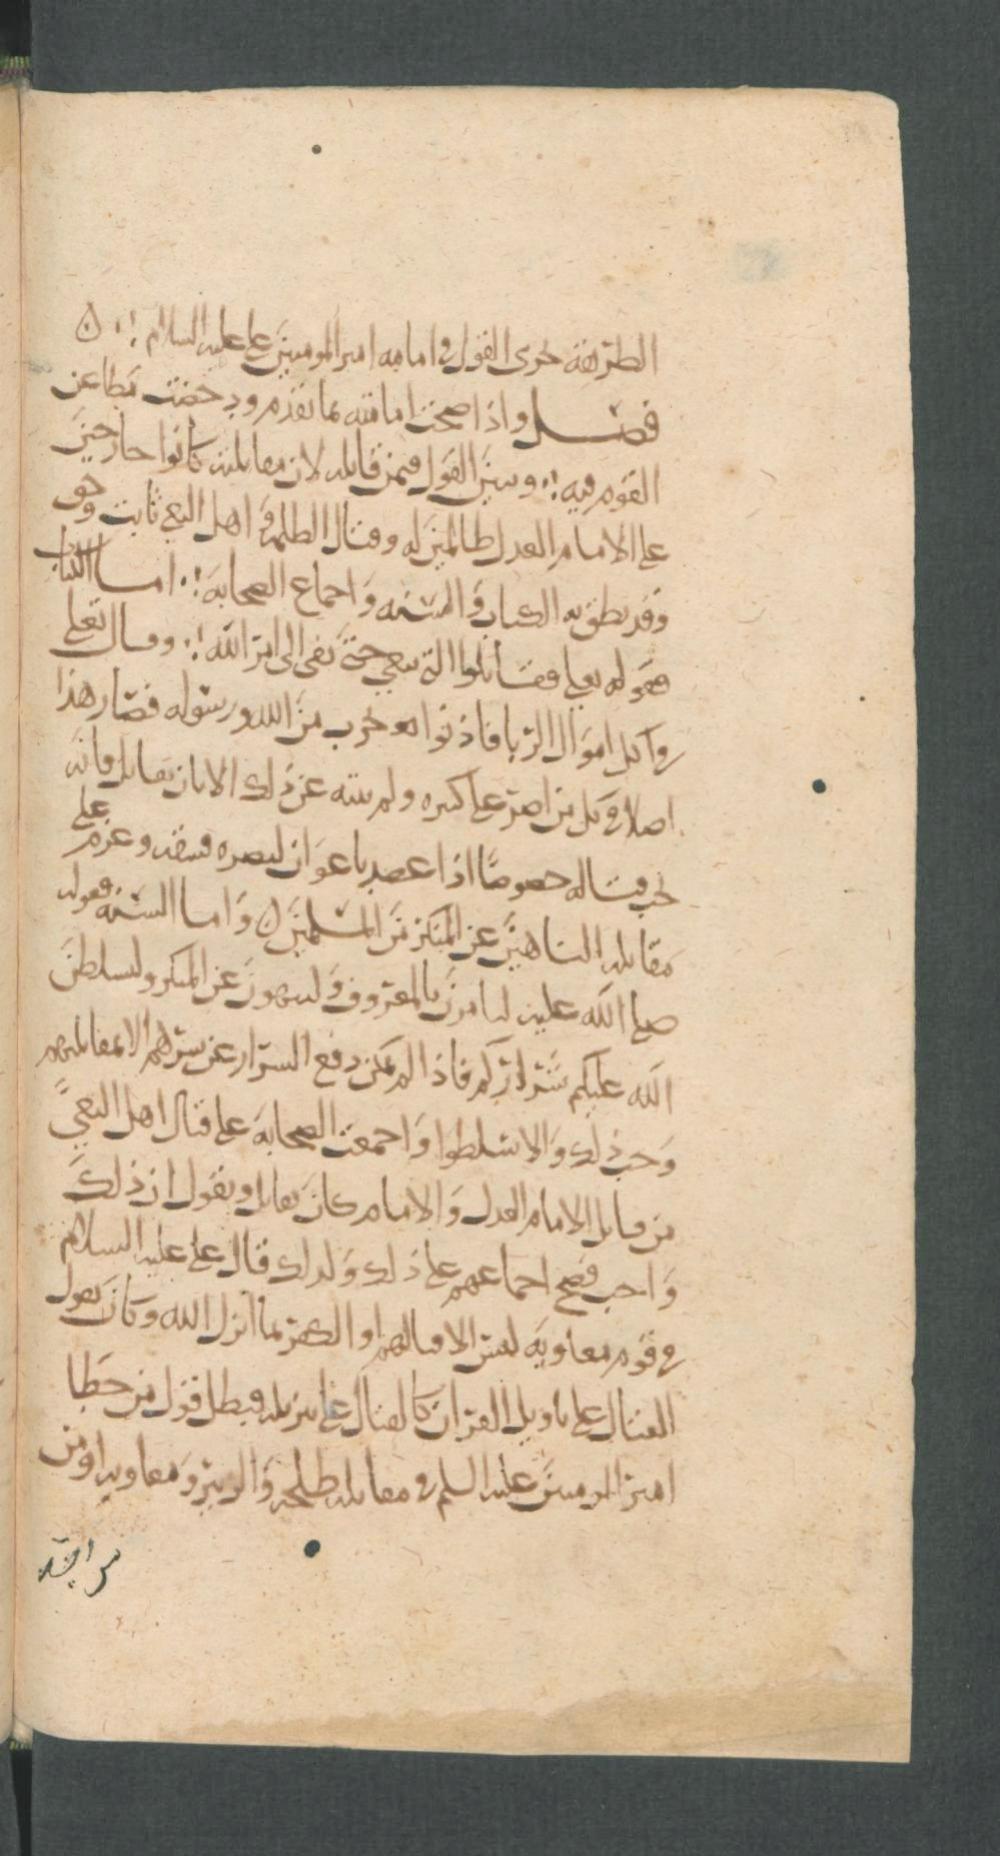 الطريقة يجرى القول في امامه امير المومنين على عليه السلام ن
فصل واذا صحت امامته بما تقدم ودحضت مطاعن
القوم فيه وبين القول فيمن قاتله لان مقاتليه كانوا خارجين
على الامام العدل ظالمين له وقتال الظلمة و اهل البغي ثابت وحق
وقد نطق به الكتاب والسنة واجماع الصحابة اما الكتاب
فقوله تعالى فقاتلوا التي تبغي حتى تفي الى امر الله وقال تعلى
في اكل اموال الربا فاذنوا بحرب من الله ورسوله فصار هذا
اصلا في كل من اصر على كبيره ولم ينته عن ذلك الا بان يقاتل فانه
يجب قتاله خصوصًا اذا عضد باعوان لنصره فسقه وعزم على
مقاتله الناهين عن المنكر من المسلمين ن واما السنة فقوله
صلى الله عليه لتامرن بالمعروف ولتنهون عن المنكر وليسلطن
الله عليكم شراركم فاذا لم يمكن دفع الشرار عن شرهم الا بمقاتلتهم
وجب ذلك والا تسلطوا واجمعت الصحابة على قتال اهل البغي
من قاتل الامام العدل والامام كان يقاتل ويقول ان ذلك
واجب فصح اجماعهم على ذلك ولذلك قال على عليه السلام
في قوم معاوية ليس الا قتالهم او الكفر بما انزل الله وكان يقول
القتال على تاويل القران كالقتال على تنزيله فبطل قول من خطا
امير المومنين عليه السلم في مقاتله طلحه والزبير ومعاويه او من